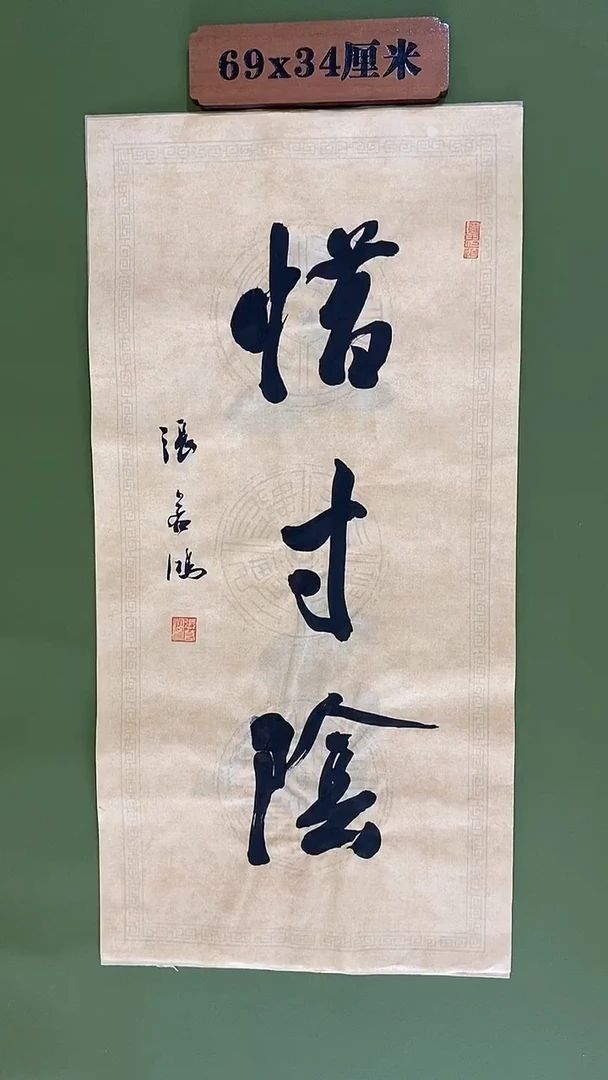 69x34厘米
惜寸陰
張若鴻